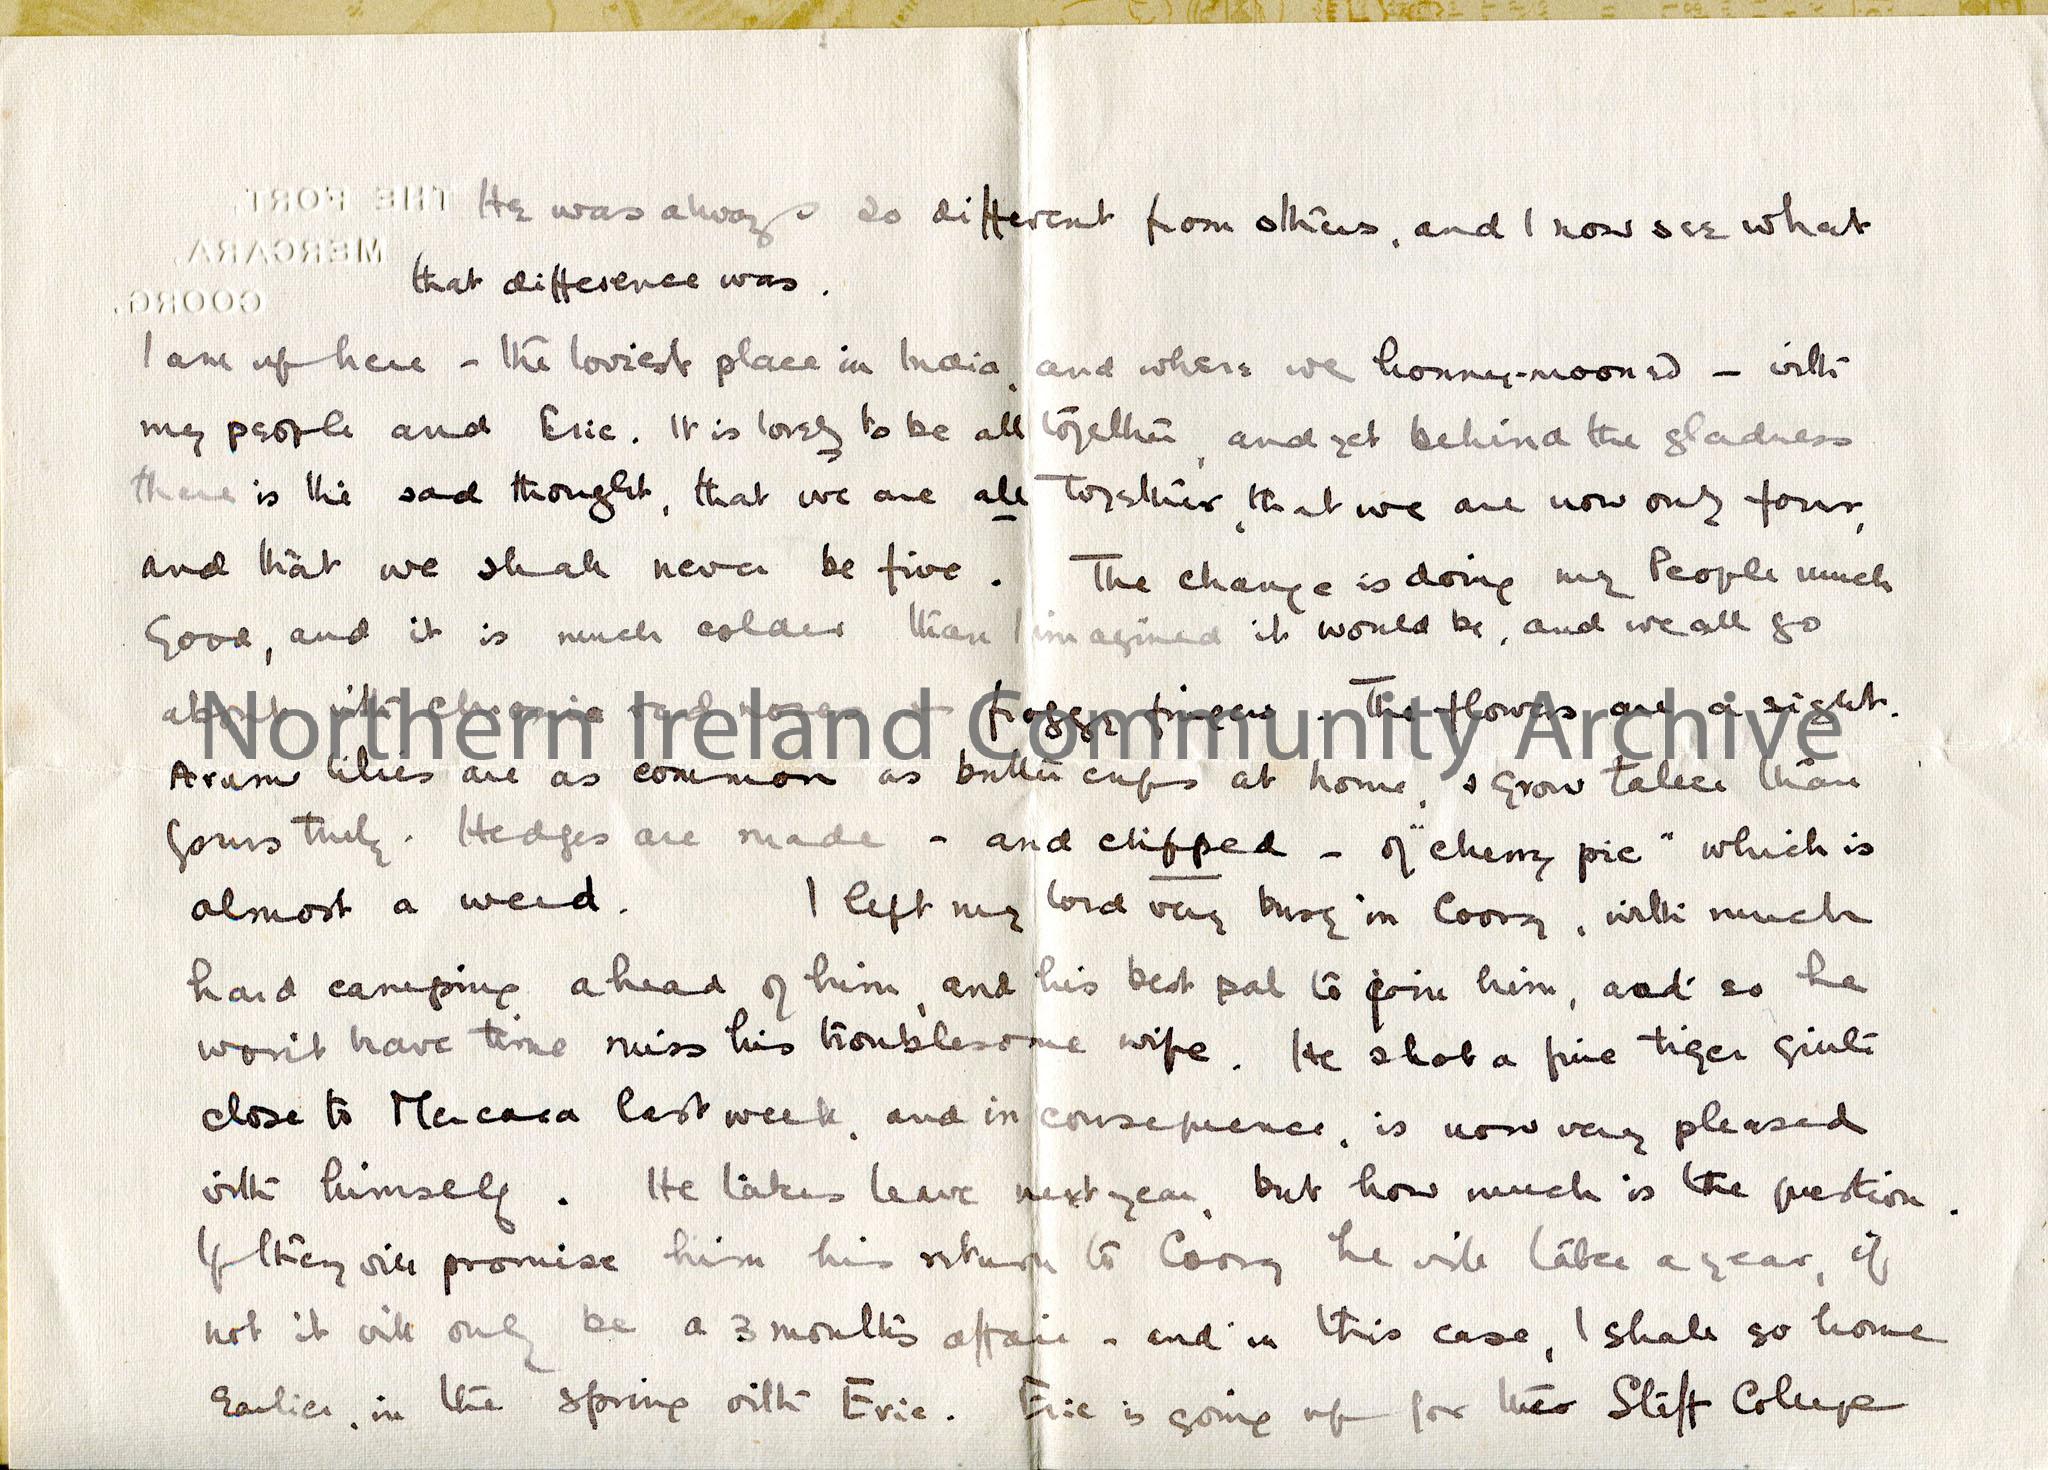 THE FORT,
MERCARA,
COORG.
He was always so different from others, and I now see what
that difference was.
I am up here - the loviest place in India, and where we honney-mooned - with
my people and Eric. It is lovely to be all together, and yet behind the gladness
there is the sad thought, that we are all together, that we are now only four,
and that we shall never be five. The change is doing my People much
Good, and it is much colder than I imagined it would be, and we all go
about with red noses & froggy fingers. The flowers are a sight.
Northern Ireland Community Archive
Arum lilies are as common as butter cups at home, & grow taller than
yours truly. Hedges are made - and clipped - of "cherry pie" which is
almost a weed. I left my lord very busy in Coorg, with much
hard camping ahead of him, and his best pal to join him, and so he
won't have time miss his troublesome wife. He shot a fine tiger quite
close to Mercara last week, and in consequence, is now very pleased
with himself. He takes leave next year, but how much is the question.
If they will promise him his return to Coorg he will take a year, if
not it will only be a 3 months affair - and in this case, I shall go home
earlier, in the spring with Eric. Eric is going up for the Staff College